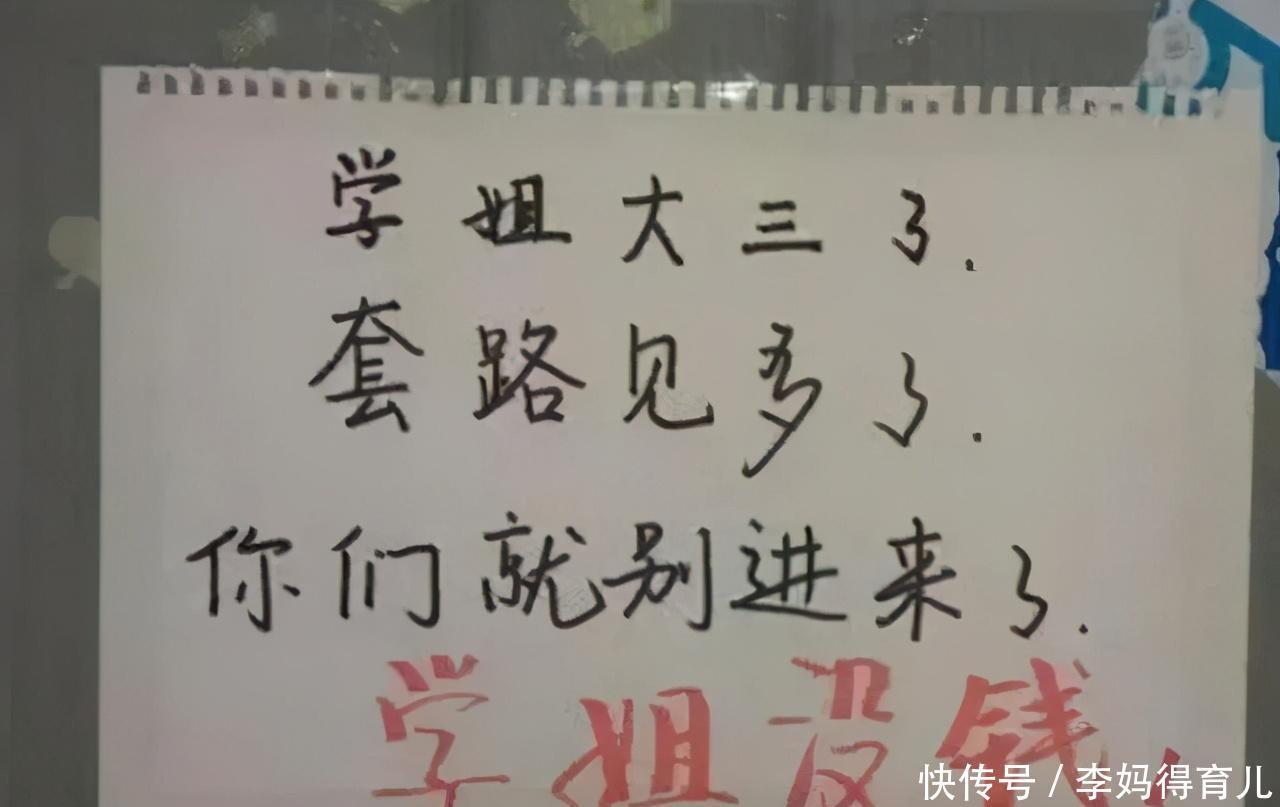 学姐大三了.
套路见多了.
你们就别进来了.
学姐没钱
快传号 / 李妈得育儿